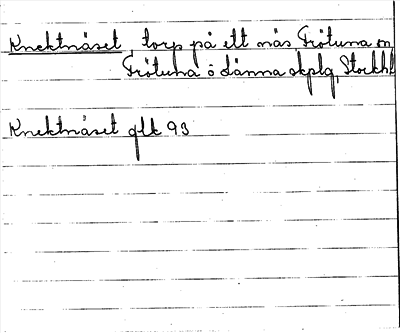 Knektnäset, torp på ett näs Frötuna sn
Frötuna o Länna skplg, Stockh.
Knektnäset glk 93